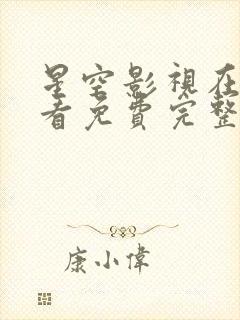 星空影視在
看免費完整
康小偉